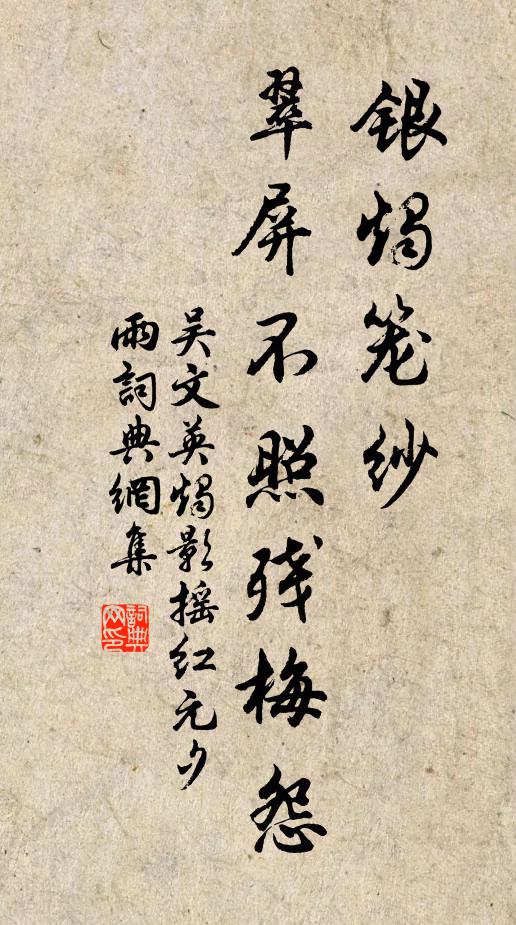 银烛笼纱
翠屏不照残梅怨
吴文英烛影摇红元夕
雨詞典網集
詞典
网印